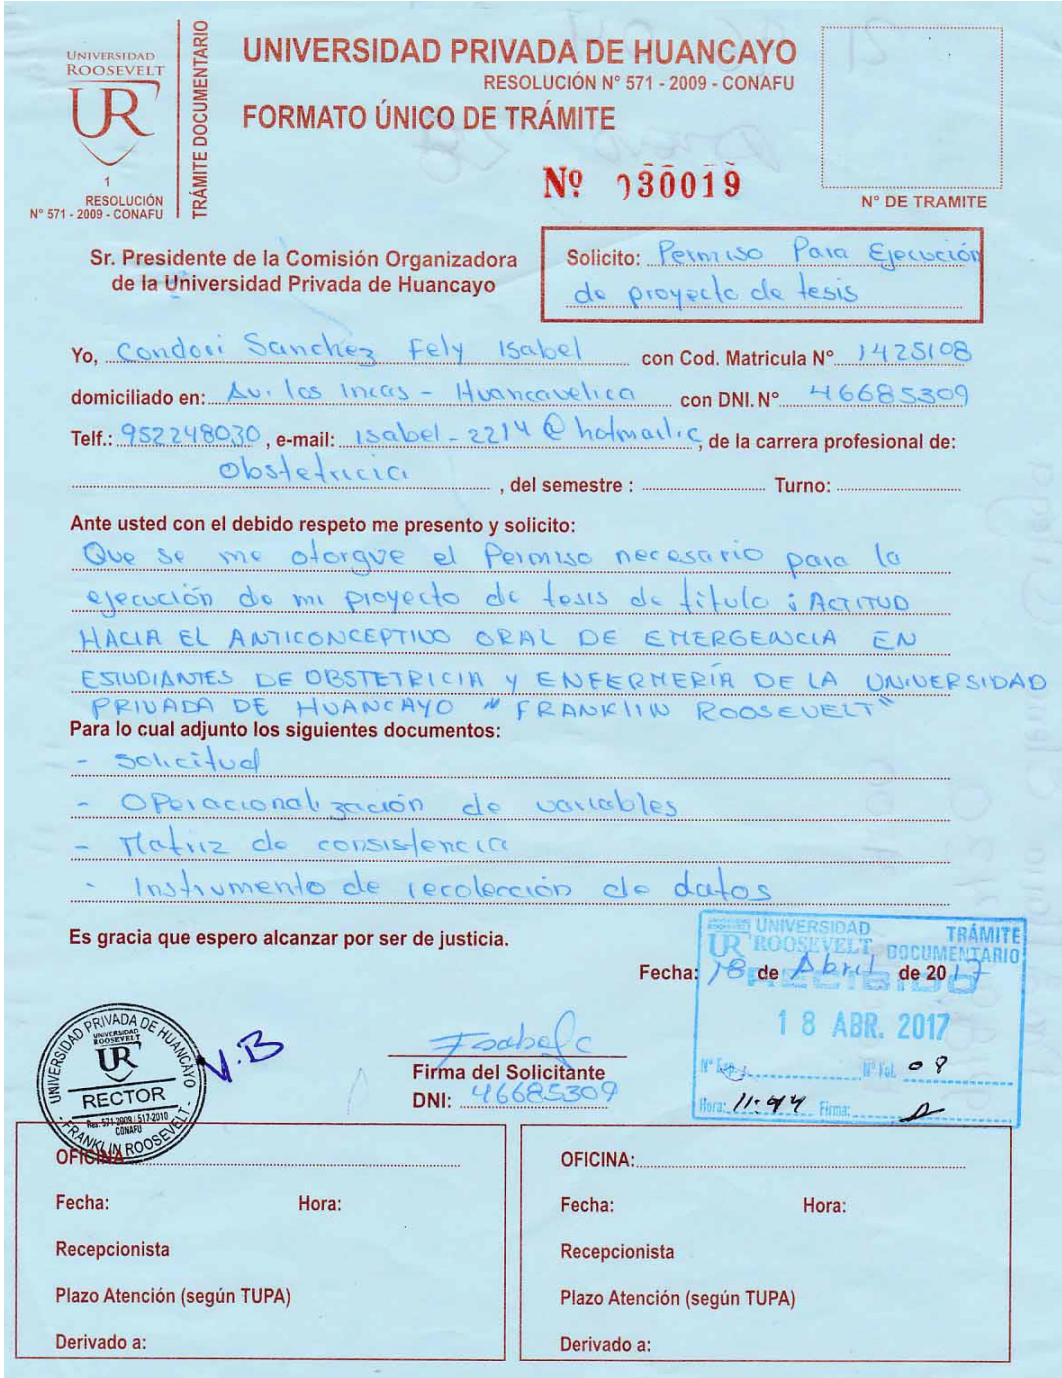 UNIVERSIDAD
ROOSEVELT
UR
1
RESOLUCIÓN
N° 571 - 2009 - CONAFU
TRÁMITE DOCUMENTARIO
UNIVERSIDAD PRIVADA DE HUANCAYO
RESOLUCIÓN N° 571 - 2009 - CONAFU
FORMATO ÚNICO DE TRÁMITE
Nº 030019
N° DE TRAMITE
Sr. Presidente de la Comisión Organizadora
de la Universidad Privada de Huancayo
Solicito: Permiso Para Ejecución
de proyecto de tesis
Yo, Condori Sanchez Fely Isabel con Cod. Matricula N° 1425108
domiciliado en: Av. los incas - Huancavelica con DNI. N° 46685309
Telf.: 952248030, e-mail: isabel-2214@hotmail.c, de la carrera profesional de:
Obstetricia, del semestre : Turno:
Ante usted con el debido respeto me presento y solicito:
Que se me otorgue el Permiso necesario para la
ejecución de mi proyecto de tesis de título : ACTITUD
HACIA EL ANTICONCEPTIVO ORAL DE EMERGENCIA EN
ESTUDIANTES DE OBSTETRICIA Y ENFERMERÍA DE LA UNIVERSIDAD
PRIVADA DE HUANCAYO "FRANKLIN ROOSEVELT"
Para lo cual adjunto los siguientes documentos:
- Solicitud
- Operacionalización de variables
- Matriz de consistencia
- Instrumento de recolección de datos
Es gracia que espero alcanzar por ser de justicia.
UNIVERSIDAD
UR ROOSEVELT
TRÁMITE
DOCUMENTARIO
Fecha: 18 de Abril de 2017
RECIBIDO
18 ABR. 2017
N° Exp. N° Fol. 08
Hora: 11:44 Firma:
UNIVERSIDAD PRIVADA DE HUANCAYO
UNIVERSIDAD
ROOSEVELT
UR
RECTOR
Res. 571-2009 / 517-2010
CONAFU
- FRANKLIN ROOSEVELT -
V.B
Isabel c
Firma del Solicitante
DNI: 46685309
OFICINA
Fecha: Hora:
Recepcionista
Plazo Atención (según TUPA)
Derivado a:
OFICINA:
Fecha: Hora:
Recepcionista
Plazo Atención (según TUPA)
Derivado a: